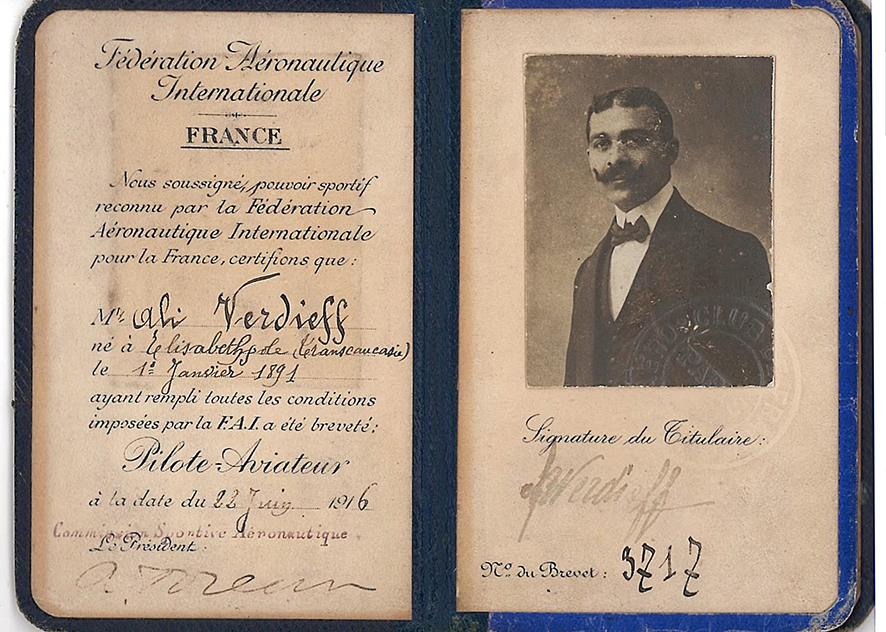 Fédération Aéronautique
Internationale
FRANCE
Nous soussigné, pouvoir sportif
reconnu par la Fédération
Aéronautique Internationale
pour la France, certifions que :
Mr. Ali Verdieff
né à Elisabethpole (Transcaucasie)
le 1er Janvier 1891
ayant rempli toutes les conditions
imposées par la F.A.I. a été breveté :
Pilote-Aviateur
à la date du 22 Juin 1916
Commission Sportive Aéronautique
Le Président :
Signature du Titulaire :
Verdieff
No. du Brevet : 3717